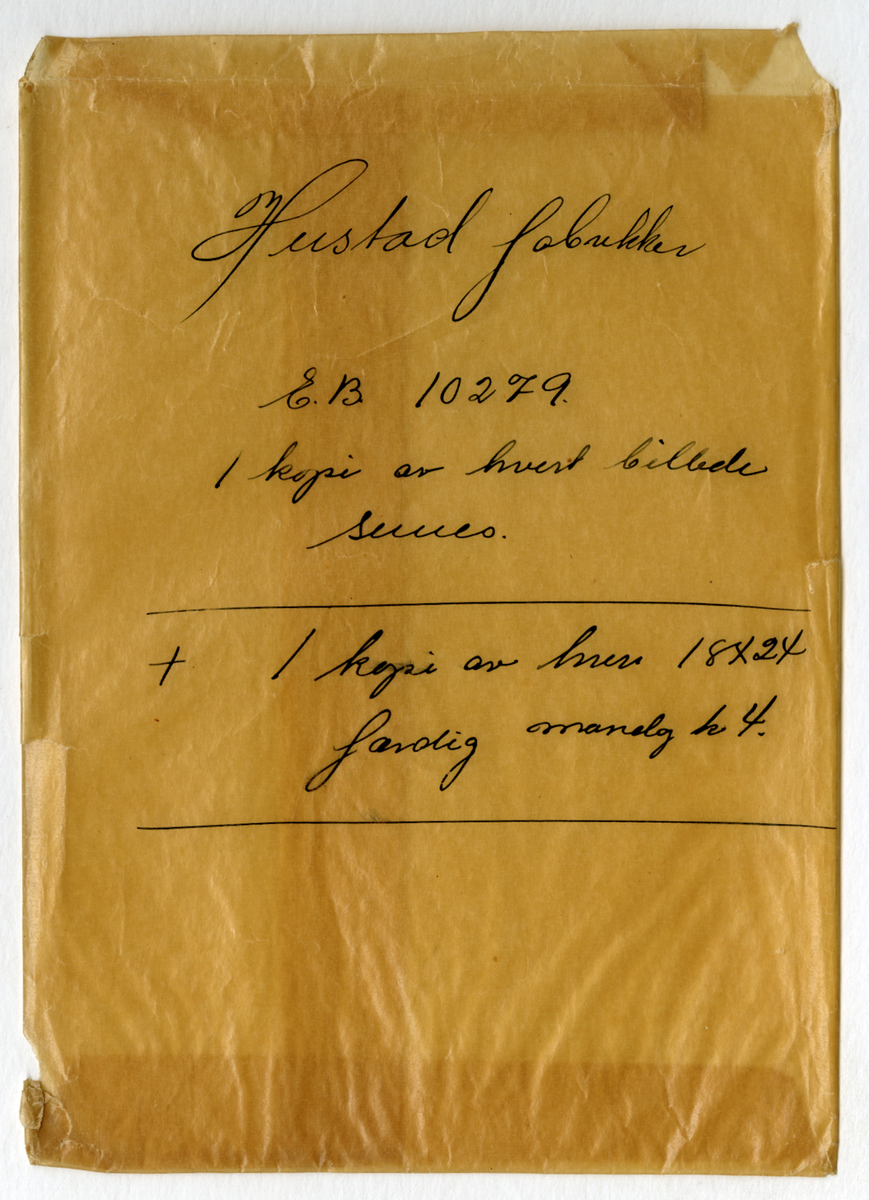 Hustad fabrikker
E.B. 10279.
1 kopi av hvert billede
+ 1 kopi av hver 18X24
færdig mandg k 4.